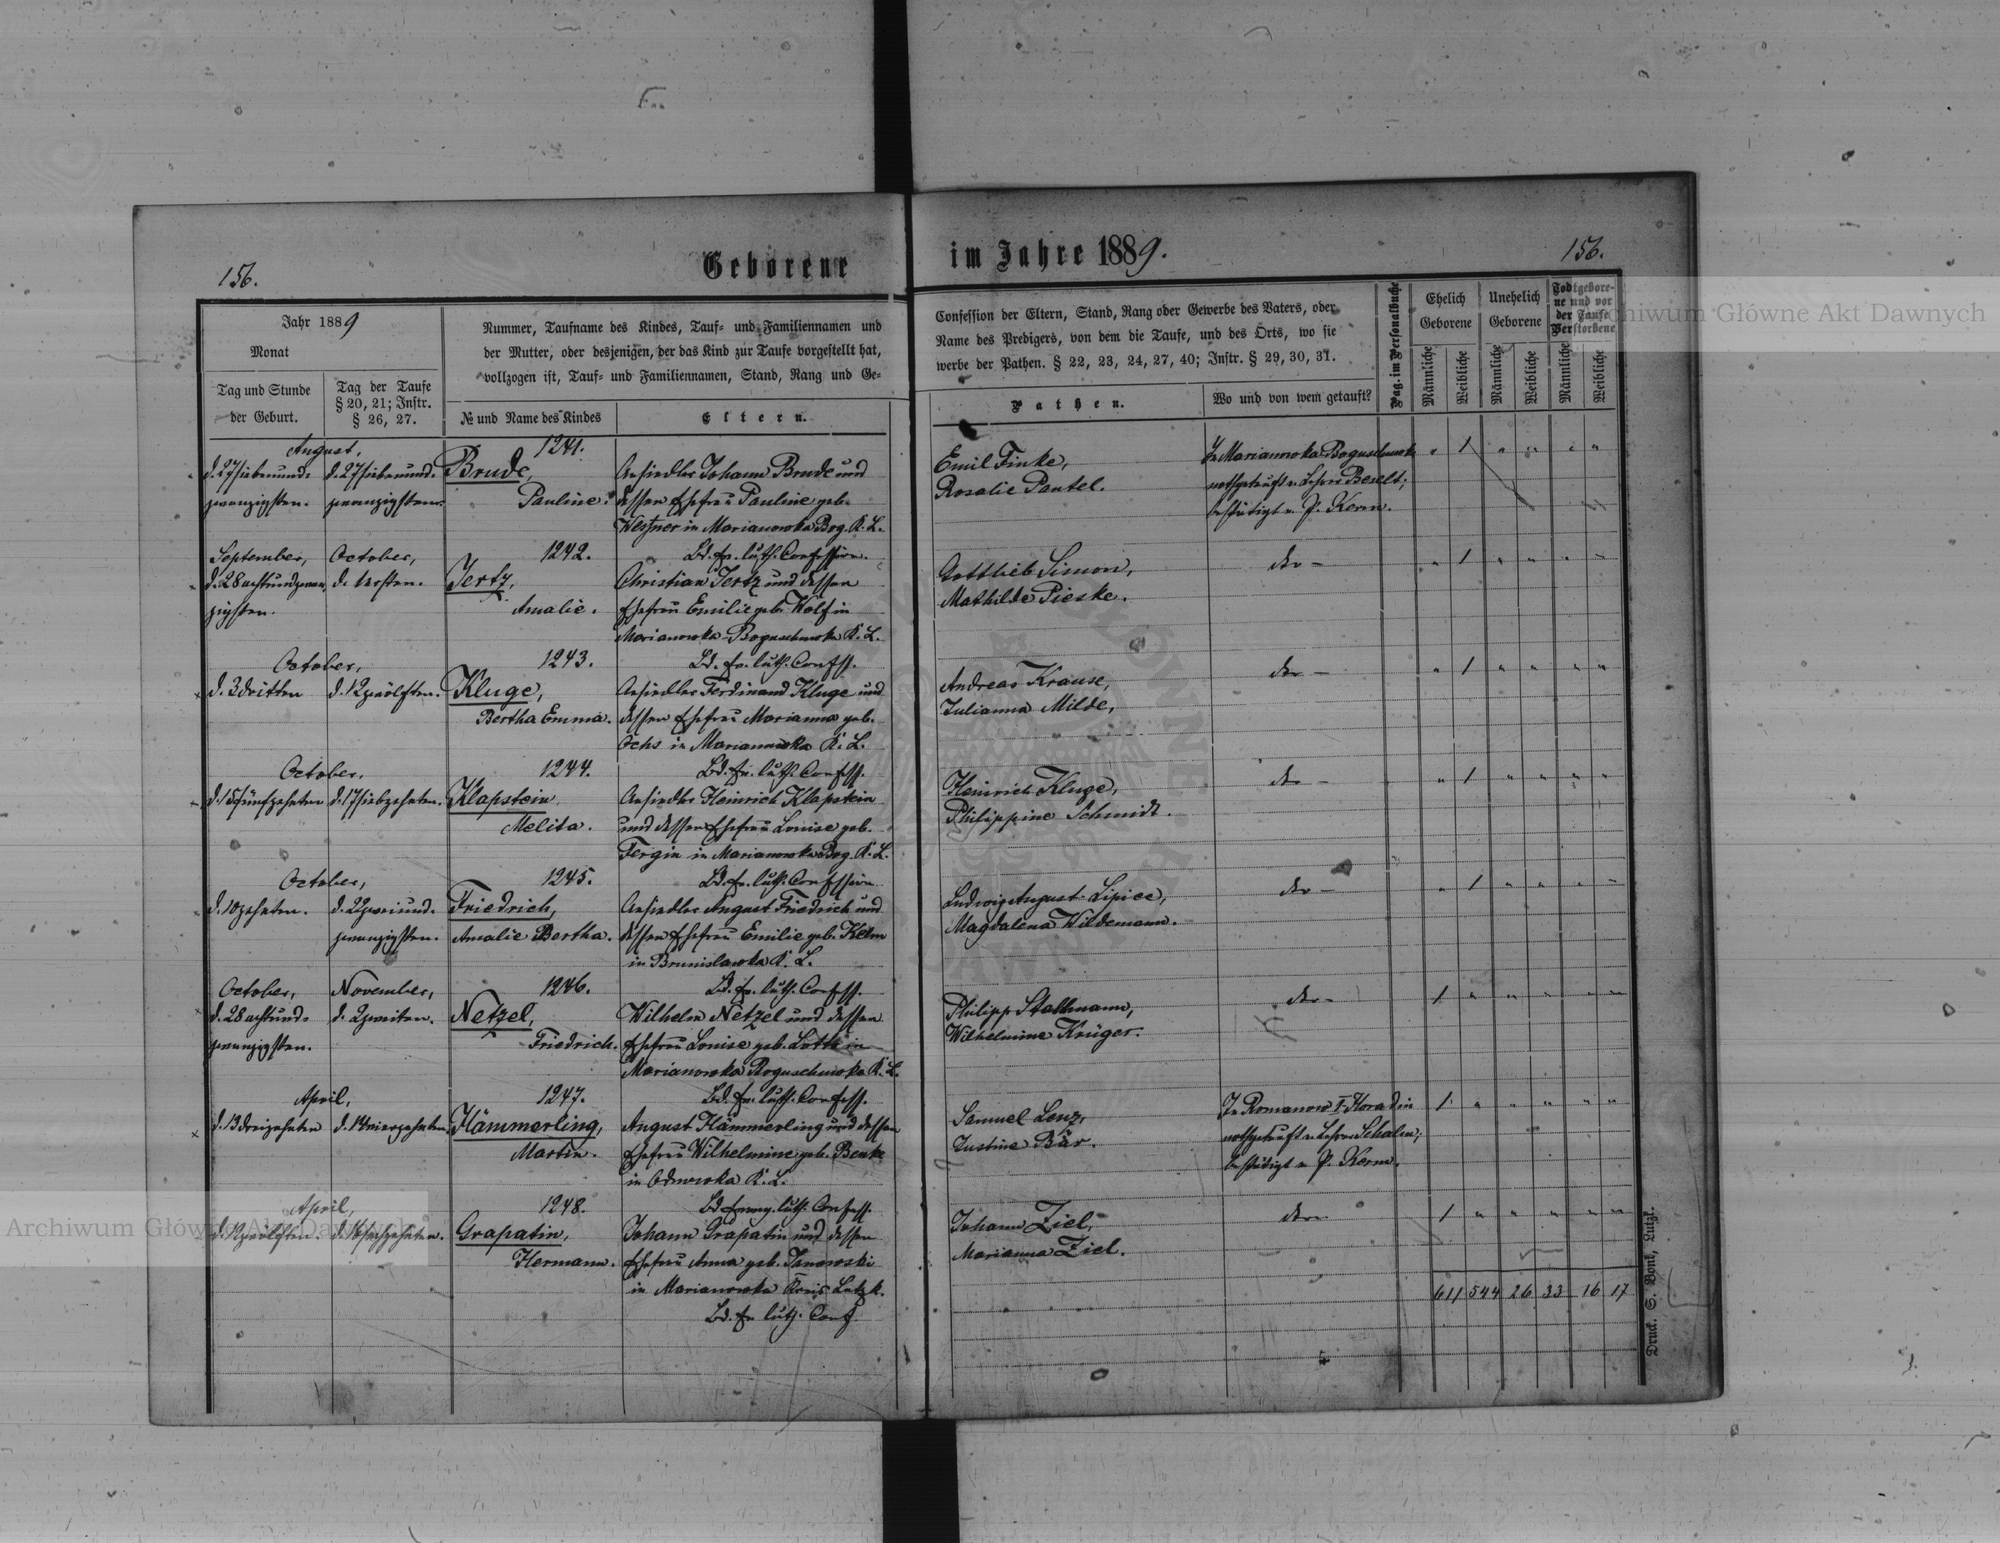 156.
Geborene
im Jahre 1889.
156.
Jahr 1889
Monat
Tag und Stunde
der Geburt.
Tag der Taufe
§ 20, 21; Instr.
§ 26, 27.
Nummer, Taufname des Kindes, Tauf- und Familiennamen und
der Mutter, oder desjenigen, der das Kind zur Taufe vorgestellt hat,
vollzogen ist, Tauf- und Familiennamen, Stand, Rang und Ge-
№ und Name des Kindes
Eltern.
Confession der Eltern, Stand, Rang oder Gewerbe des Vaters, oder
Name des Predigers, von dem die Taufe, und des Orts, wo sie
werbe der Pathen. § 22, 23, 24, 27, 40; Instr. § 29, 30, 31.
Pathen.
Wo und von wem getauft?
Pag. im Personalbuche
Ehelich
Geborene
Unehelich
Geborene
Todtgebore-
ne und vor
der Taufe
Verstorbene
Männliche
Weibliche
Männliche
Weibliche
Männliche
Weibliche
August,
d. 27 siebenund-
zwanzigsten.
d. 27 siebenund-
zwanzigsten.
1241.
Brude,
Pauline.
Ansiedler Johann Brude und
dessen Ehefrau Pauline geb.
Weßner in Marianowka Bog. K. L.
Bd. ev. luth. Confession.
Emil Finke,
Rosalie Pantel.
In Marianowka Boguschowka
nothgetauft v. Lehrer Beselt;
bestätigt v. P. Kerm.
" 1 " " " "
September,
d. 28 achtundzwan-
zigsten.
October,
d. 1 ersten.
1242.
Jertz,
Amalie.
Christian Jertz und dessen
Ehefrau Emilie geb. Wolf in
Marianowka-Boguschowka K. L.
Bd. ev. luth. Confess.
Gottlieb Simon,
Mathilde Pieske.
dto –
" 1 " " " "
October,
d. 3 dritten
d. 12 zwölften.
1243.
Kluge,
Bertha Emma.
Ansiedler Ferdinand Kluge und
dessen Ehefrau Marianna geb.
Ochs in Marianowka K. L.
Bd. ev. luth. Confess.
Andreas Krause,
Julianna Milde,
dto –
" 1 " " " "
October,
d. 15 fünfzehnten
d. 17 siebzehnten.
1244.
Klapstein,
Melita.
Ansiedler Heinrich Klapstein
und dessen Ehefrau Louise geb.
Fergin in Marianowka Bog. K. L.
Bd. ev. luth. Confession
Heinrich Kluge,
Philippine Schmidt.
dto –
" 1 " " " "
October,
d. 10 zehnten.
d. 22 zweiund-
zwanzigsten.
1245.
Friedrich,
Amalie Bertha.
Ansiedler August Friedrich und
dessen Ehefrau Emilie geb. Kelm
in Brunislawka K. L.
Bd. ev. luth. Confess.
Ludwig August Lipice,
Magdalena Wildemann.
dto –
" 1 " " " "
October,
d. 28 achtund-
zwanzigsten.
November,
d. 2 zweiten.
1246.
Netzel,
Friedrich.
Wilhelm Netzel und dessen
Ehefrau Louise geb. Lottk in
Marianowka Boguschowka K. L.
Bd. ev. luth. Confess.
Philipp Stallmann,
Wilhelmine Krüger.
dto –
1 " " " " "
April,
d. 13 dreizehnten
d. 14 vierzehnten.
1247.
Hämmerling,
Martin.
August Hämmerling und dessen
Ehefrau Wilhelmine geb. Benke
in Odrowka K. L.
Bd. evang. luth. Confess.
Samuel Lenz,
Justine Bär.
In Romanow
nothgetauft v. Lehrer Schalin;
bestätigt v. P. Kerm.
1 " " " " "
April,
d. 12 zwölften.
d. 16 sechzehnten.
1248.
Grapatin,
Hermann.
Johann Grapatin und dessen
Ehefrau Anna geb. Janowski
in Marianowka Kreis Lutzk.
Bd. ev. luth. Conf.
Johann Ziel,
Marianna Ziel.
dto –
1 " " " " "
611 544 26 33 16 17
Druck. S. Bonk, Lutzk.
Archiwum Główne Akt Dawnych
Archiwum Główne Akt Dawnych